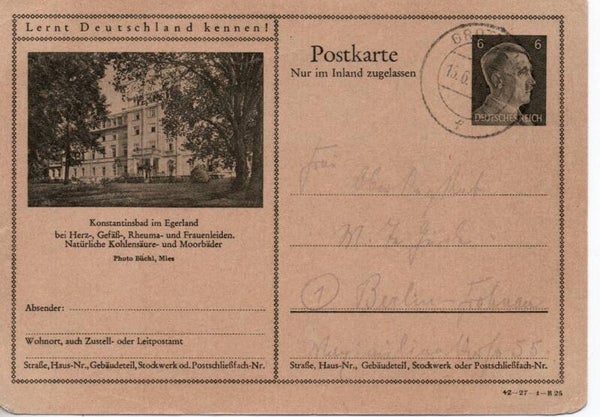 Lernt Deutschland kennen!
Konstantinsbad im Egerland
bei Herz-, Gefäß-, Rheuma- und Frauenleiden.
Natürliche Kohlensäure- und Moorbäder
Photo Büchl, Mies
Absender:
Wohnort, auch Zustell- oder Leitpostamt
Straße, Haus-Nr., Gebäudeteil, Stockwerk od. Postschließfach-Nr.
Postkarte
Nur im Inland zugelassen
6 6
DEUTSCHES REICH
Berlin-
Straße, Haus-Nr., Gebäudeteil, Stockwerk oder Postschließfach-Nr.
42-27-1-B 25